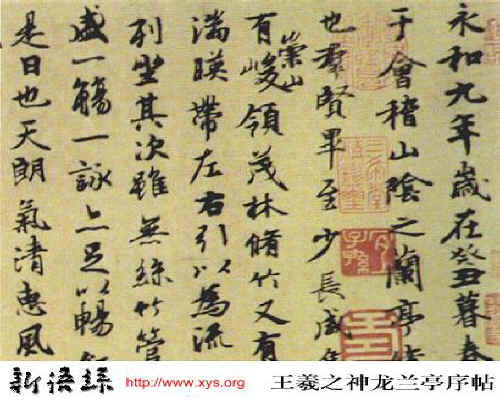 永和九年歲在癸丑暮春
于會稽山陰之蘭亭
也羣賢畢至少長咸
有崇山峻領茂林脩竹又有
湍暎帶左右引以為流
列坐其次雖無絲竹管
盛一觴一詠亦足以暢
是日也天朗氣清惠風
新語絲 http://www.xys.org 王羲之神龙兰亭序帖